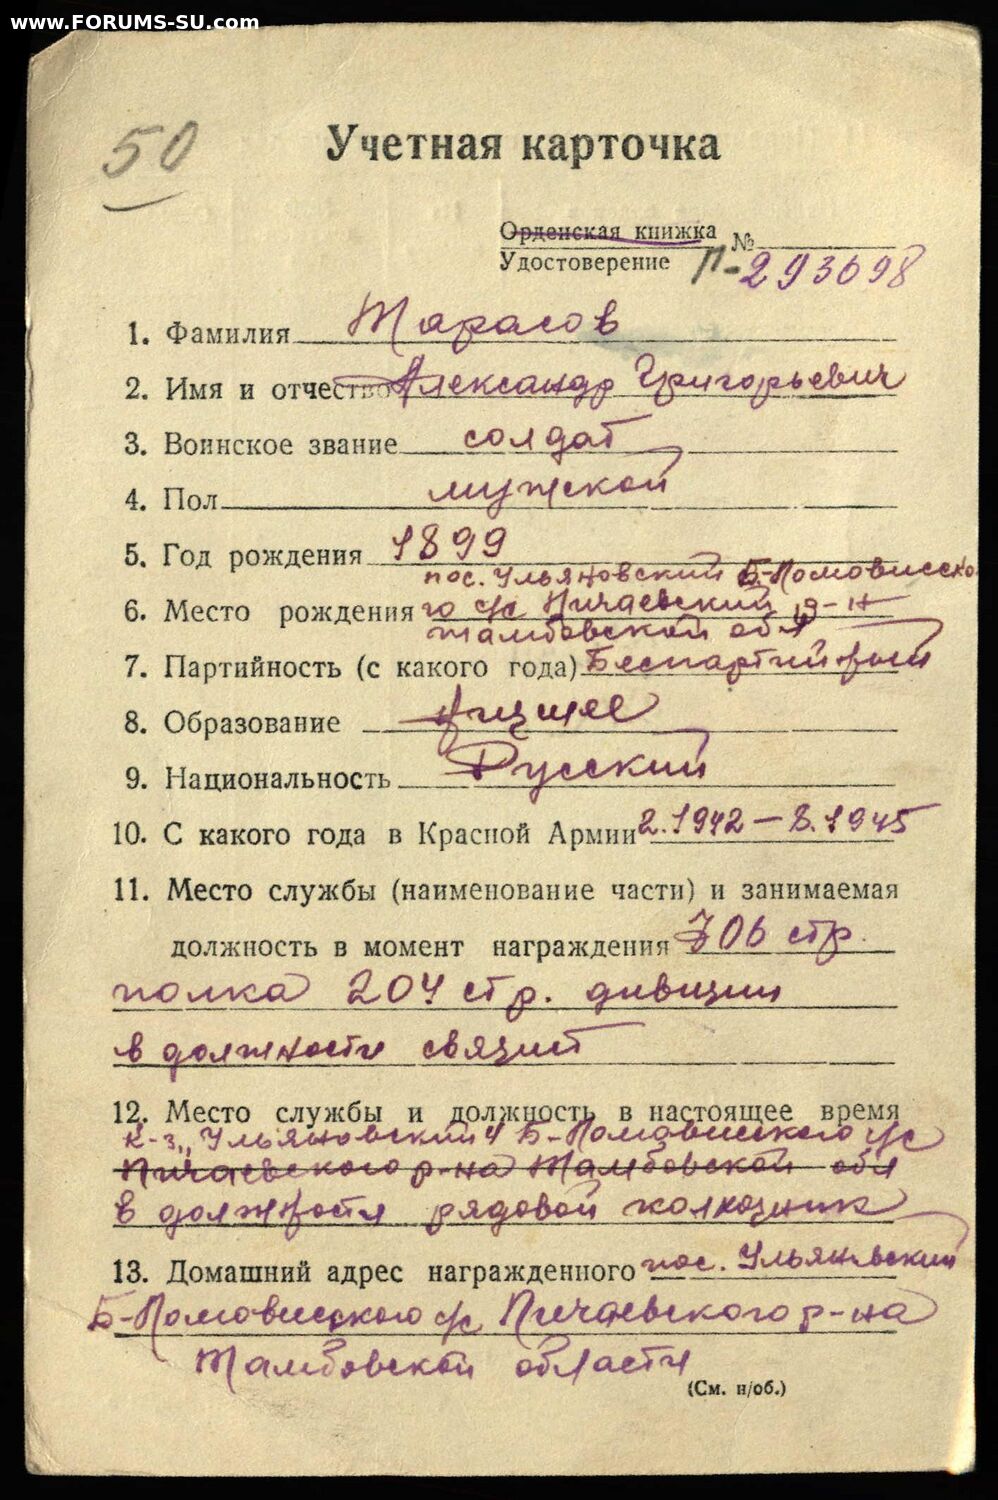 www.FORUMS-SU.com
50
Учетная карточка
Орденская книжка
Удостоверение № П-293698
1. Фамилия Тарасов
2. Имя и отчество Александр Григорьевич
3. Воинское звание солдат
4. Пол мужской
5. Год рождения 1899
пос. Ульяновский Б-Ломовисско
6. Место рождения го с/с Пичаевский р-н
Тамбовской обл
7. Партийность (с какого года) Беспартийный
8. Образование низшее
9. Национальность Русский
10. С какого года в Красной Армии 2.1942 – 8.1945
11. Место службы (наименование части) и занимаемая
должность в момент награждения 706 стр.
полка 204 стр. дивизии
в должности связист
12. Место службы и должность в настоящее время
к-з „Ульяновский" Б-Ломовисского с/с
Пичаевского р-на Тамбовской обл
в должности рядовой колхозник
13. Домашний адрес награжденного пос. Ульяновский
Б-Ломовисского с/с Пичаевского р-на
Тамбовской области
(См. н/об.)